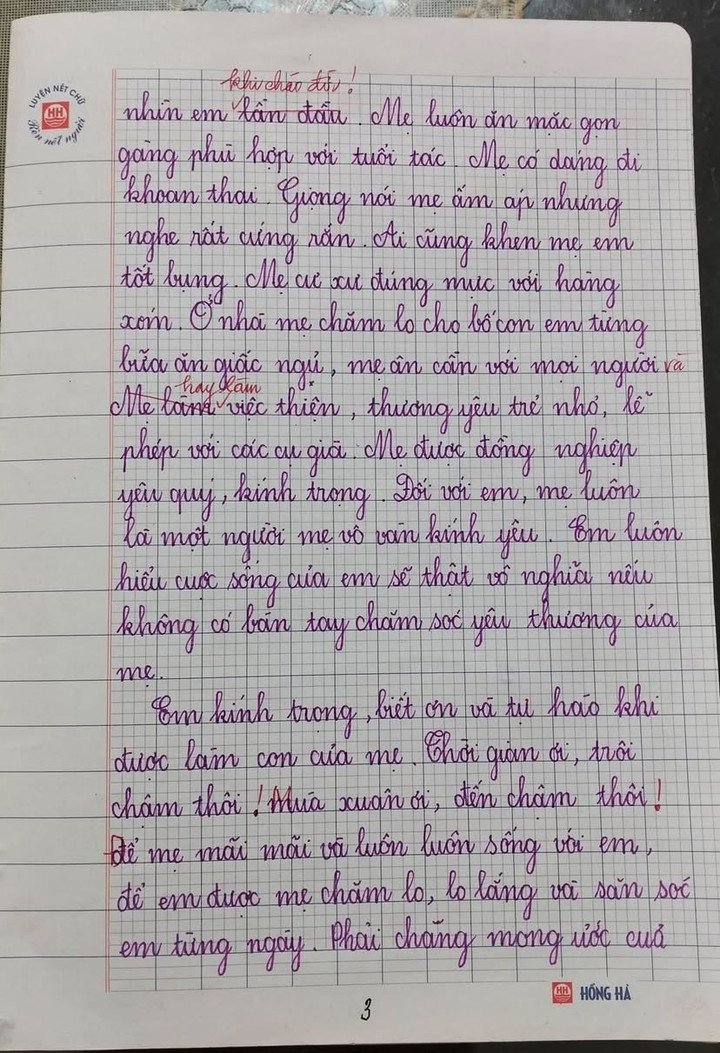 LUYỆN NẾT CHỮ
HH
Rèn nết người
khi chào đời!
nhìn em lần đầu. Mẹ luôn ăn mặc gọn
gàng phù hợp với tuổi tác. Mẹ có dáng đi
khoan thai. Giọng nói mẹ ấm áp nhưng
nghe rất cứng rắn. Ai cũng khen mẹ em
tốt bụng. Mẹ cư xử đúng mực với hàng
xóm. Ở nhà mẹ chăm lo cho bố con em từng
bữa ăn giấc ngủ, mẹ ân cần với mọi người và
hay làm
Mẹ làng việc thiện, thương yêu trẻ nhỏ, lễ
phép với các cụ già. Mẹ được đồng nghiệp
yêu quý, kính trọng. Đối với em, mẹ luôn
là một người mẹ vô vàn kính yêu. Em luôn
hiểu cuộc sống của em sẽ thật vô nghĩa nếu
không có bàn tay chăm sóc yêu thương của
mẹ.
Em kính trọng, biết ơn và tự hào khi
được làm con của mẹ. Thời gian ơi, trôi
chậm thôi! Mùa xuân ơi, đến chậm thôi!
Để mẹ mãi mãi và luôn luôn sống với em,
để em được mẹ chăm lo, lo lắng và săn sóc
em từng ngày. Phải chăng mong ước của
HH HỒNG HÀ
3